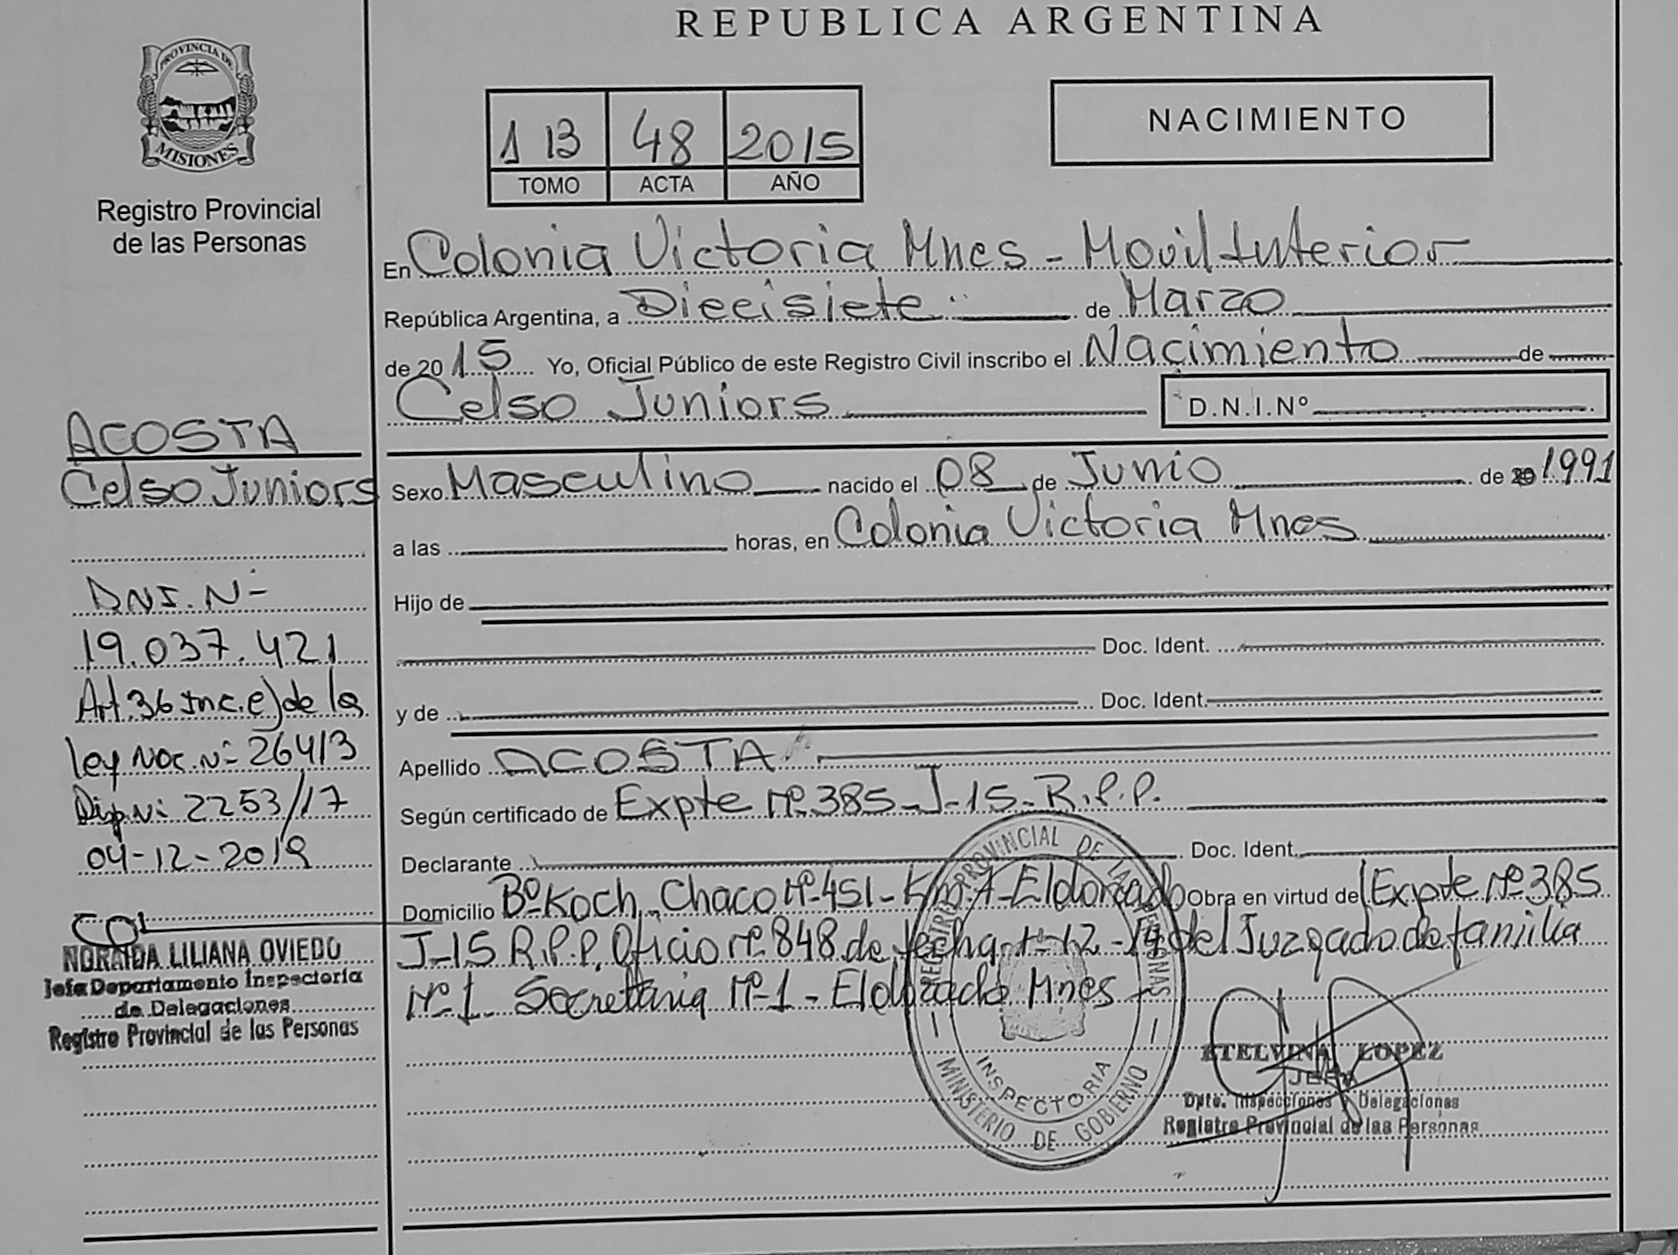 REPUBLICA ARGENTINA
PROVINCIA DE
MISIONES
Registro Provincial
de las Personas
1 B 48 2015
TOMO ACTA AÑO
NACIMIENTO
En Colonia Victoria Mnes - Movil Interior
República Argentina, a Diecisiete de Marzo
de 2015 Yo, Oficial Público de este Registro Civil inscribo el Nacimiento de
Celso Juniors D.N.I.Nº
ACOSTA
Celso Juniors
DNI. Nº
19.037.421
Art. 36 Inc. e) de la
ley Nac. Nº 26413
Disp. Nº 2253/17
04-12-2019
NORAIDA LILIANA OVIEDO
Jefa Departamento Inspectoria
de Delegaciones
Registro Provincial de las Personas
Sexo Masculino nacido el 08 de Junio de 1991
a las horas, en Colonia Victoria Mnes
Hijo de
Doc. Ident.
y de Doc. Ident.
Apellido ACOSTA
Según certificado de Expte Nº 385-J-15-R.P.P.
Declarante Doc. Ident.
Domicilio Bº Koch, Chaco Nº 451 - Eldorado Obra en virtud de Expte Nº 385
J-15 R.P.P. Oficio nº 848 de fecha del Juzgado de familia
Nº 1 Secretaria Nº 1 - Eldorado Mnes
REGISTRO PROVINCIAL DE LAS PERSONAS
INSPECTORIA
MINISTERIO DE GOBIERNO
ETELVINA LOPEZ
JEFA
Dpto. Inspecciones y Delegaciones
Registro Provincial de las Personas